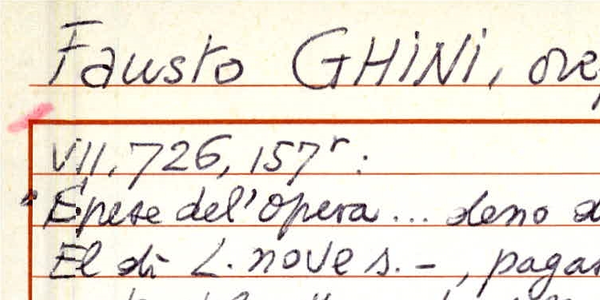 Fausto GHINI,
VII. 726, 157r:
"Epese dell'opera... deno
El di L. nove s. -, pagar